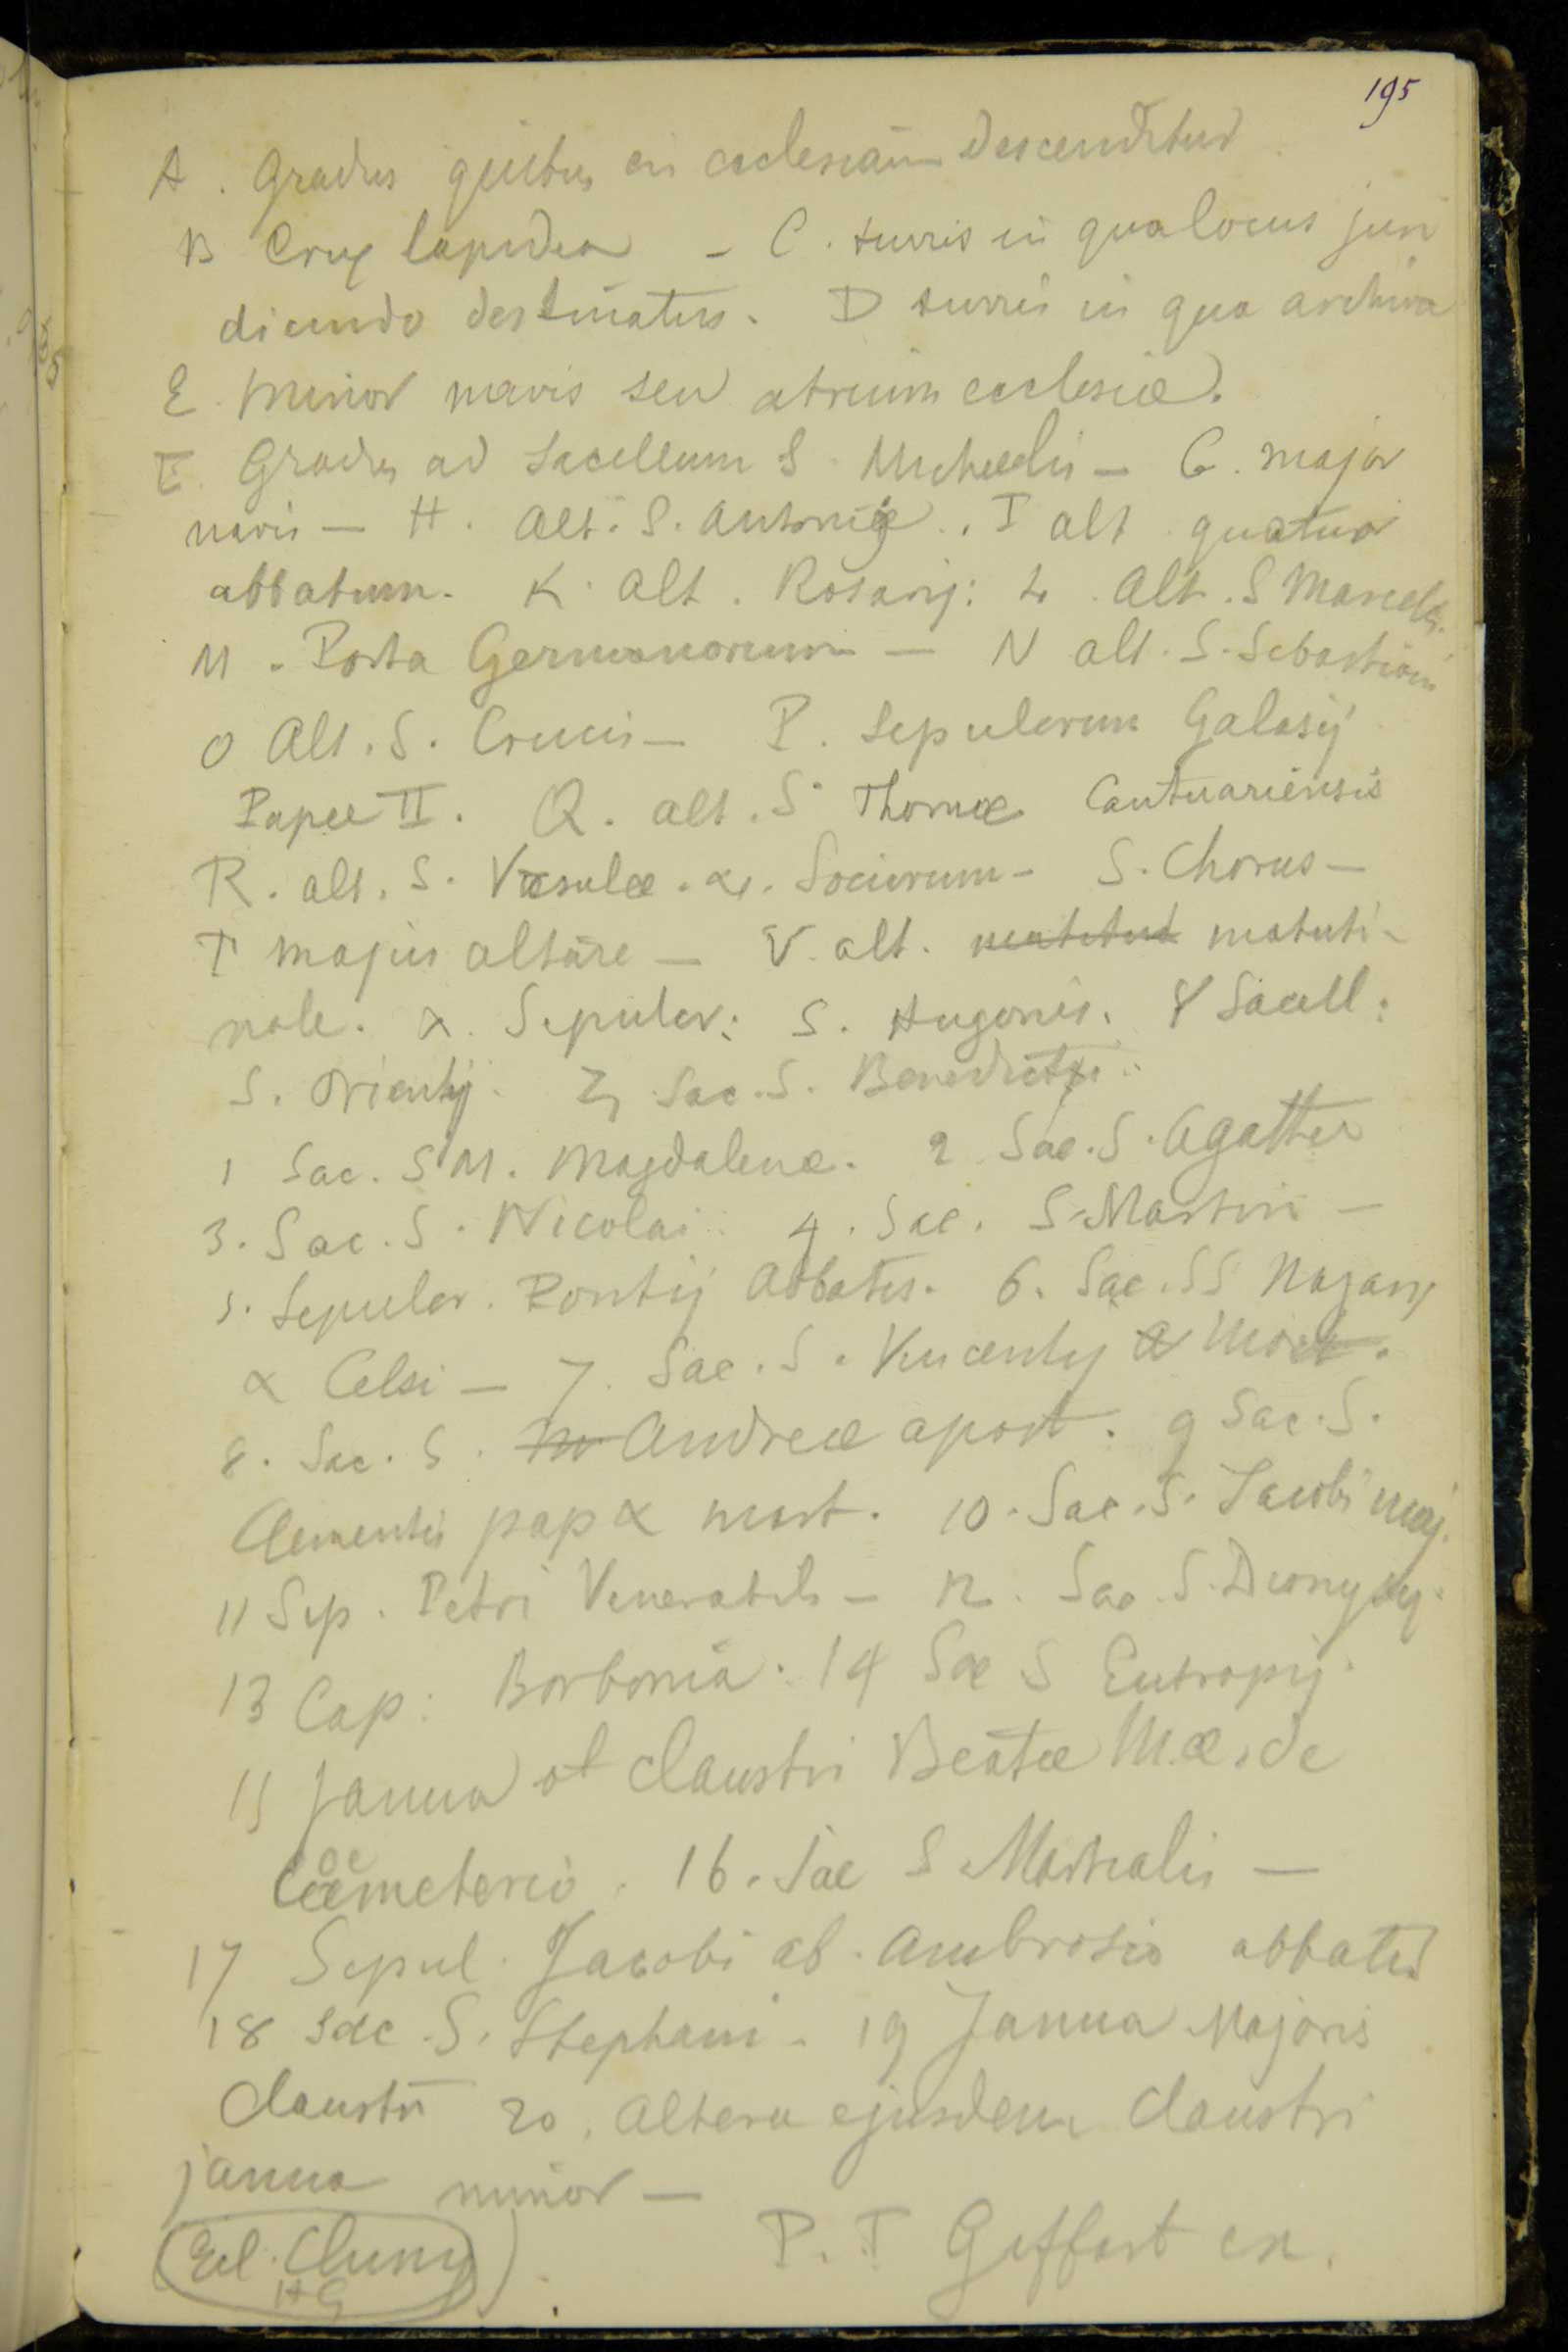 195
A. Gradus quibus in ecclesiam descenditur
B Crux lapidea – C. turris in qua locus juri
dicundo destinatus. D turris in qua archiva
E. Minor navis seu atrium ecclesiæ.
F. Gradus ad Sacellum S. Michaelis – G. major
navis – H. alt. S. Antonij. I alt quatuor
abbatum. K. alt. Rosarij: L. alt. S Marcelli.
M. Porta Germanorum – N alt. S. Sebastiani
O Alt. S. Crucis – P. Sepulcrum Galasij
Papæ II. Q. alt. S. Thomæ Cantuariensis
R. alt. S. Vrsulæ. &. Sociarum – S. Chorus –
T majus altare – V. alt. matuti-
nale. X. Sepulcr: S. Hugonis. Y Sacell:
S. Orientij. Z Sac. S. Benedicti.
1 Sac. S M. Magdalenæ. 2 Sac. S. Agathæ
3. Sac. S. Nicolai. 4. Sac. S. Martini –
5. Sepulcr. Pontij Abbatis. 6. Sac. SS Nazarij
& Celsi – 7. Sac. S. Vincentij Mart.
8. Sac. S. Andreæ apost. 9 Sac. S.
Clementis pap & mart. 10. Sac. S. Jacobi maj.
11 Sep. Petri Venerabilis – 12. Sac. S. Dionysij.
13 Cap: Borbonia. 14 Sac S Eutropij.
15 Janua claustri Beatæ M.æ. de
Coemeterio. 16. Sac S Martialis –
17 Sepul. Jacobi ab. Ambrosio abbatis
18 Sac. S. Stephani. 19 Janua Majoris
Claustri 20. Altera ejusdem Claustri
janua minor –
P. F Giffart ex.
(Ecl. Cluny
HG)